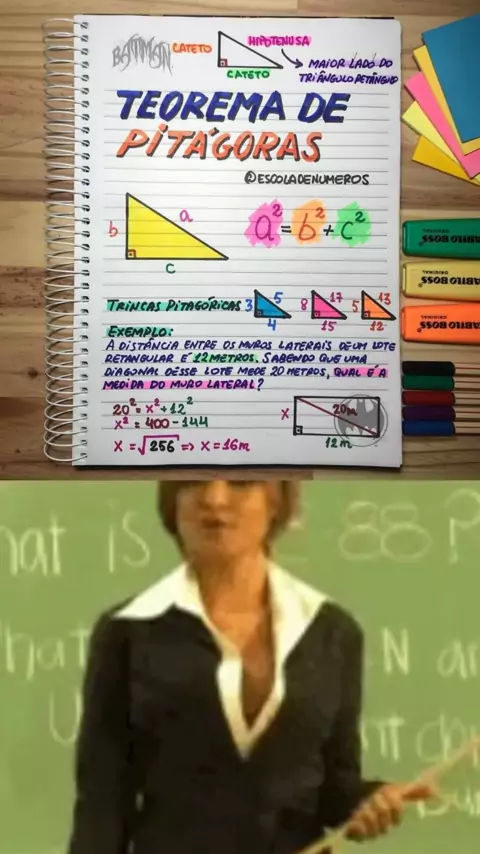 BATMAN
CATETO
HIPOTENUSA
CATETO
MAIOR LADO DO
TRIÂNGULO RETÂNGULO
TEOREMA DE
PITÁGORAS
@ESCOLADENUMEROS
b a
c
a² = b² + c²
TRINCAS PITAGÓRICAS 3 5 4 8 17 15 5 13 12
EXEMPLO:
A DISTÂNCIA ENTRE OS MUROS LATERAIS DE UM LOTE
RETANGULAR É 12 METROS. SABENDO QUE UMA
DIAGONAL DESSE LOTE MEDE 20 METROS, QUAL É A
MEDIDA DO MURO LATERAL?
20² = X² + 12²
X² = 400 - 144
X = √256 => X = 16m
X 20m
12m
BOSS
ORIGINAL
BOSS
ORIGINAL
BOSS
ORIGINAL
hat is 88?
hat N ar
U